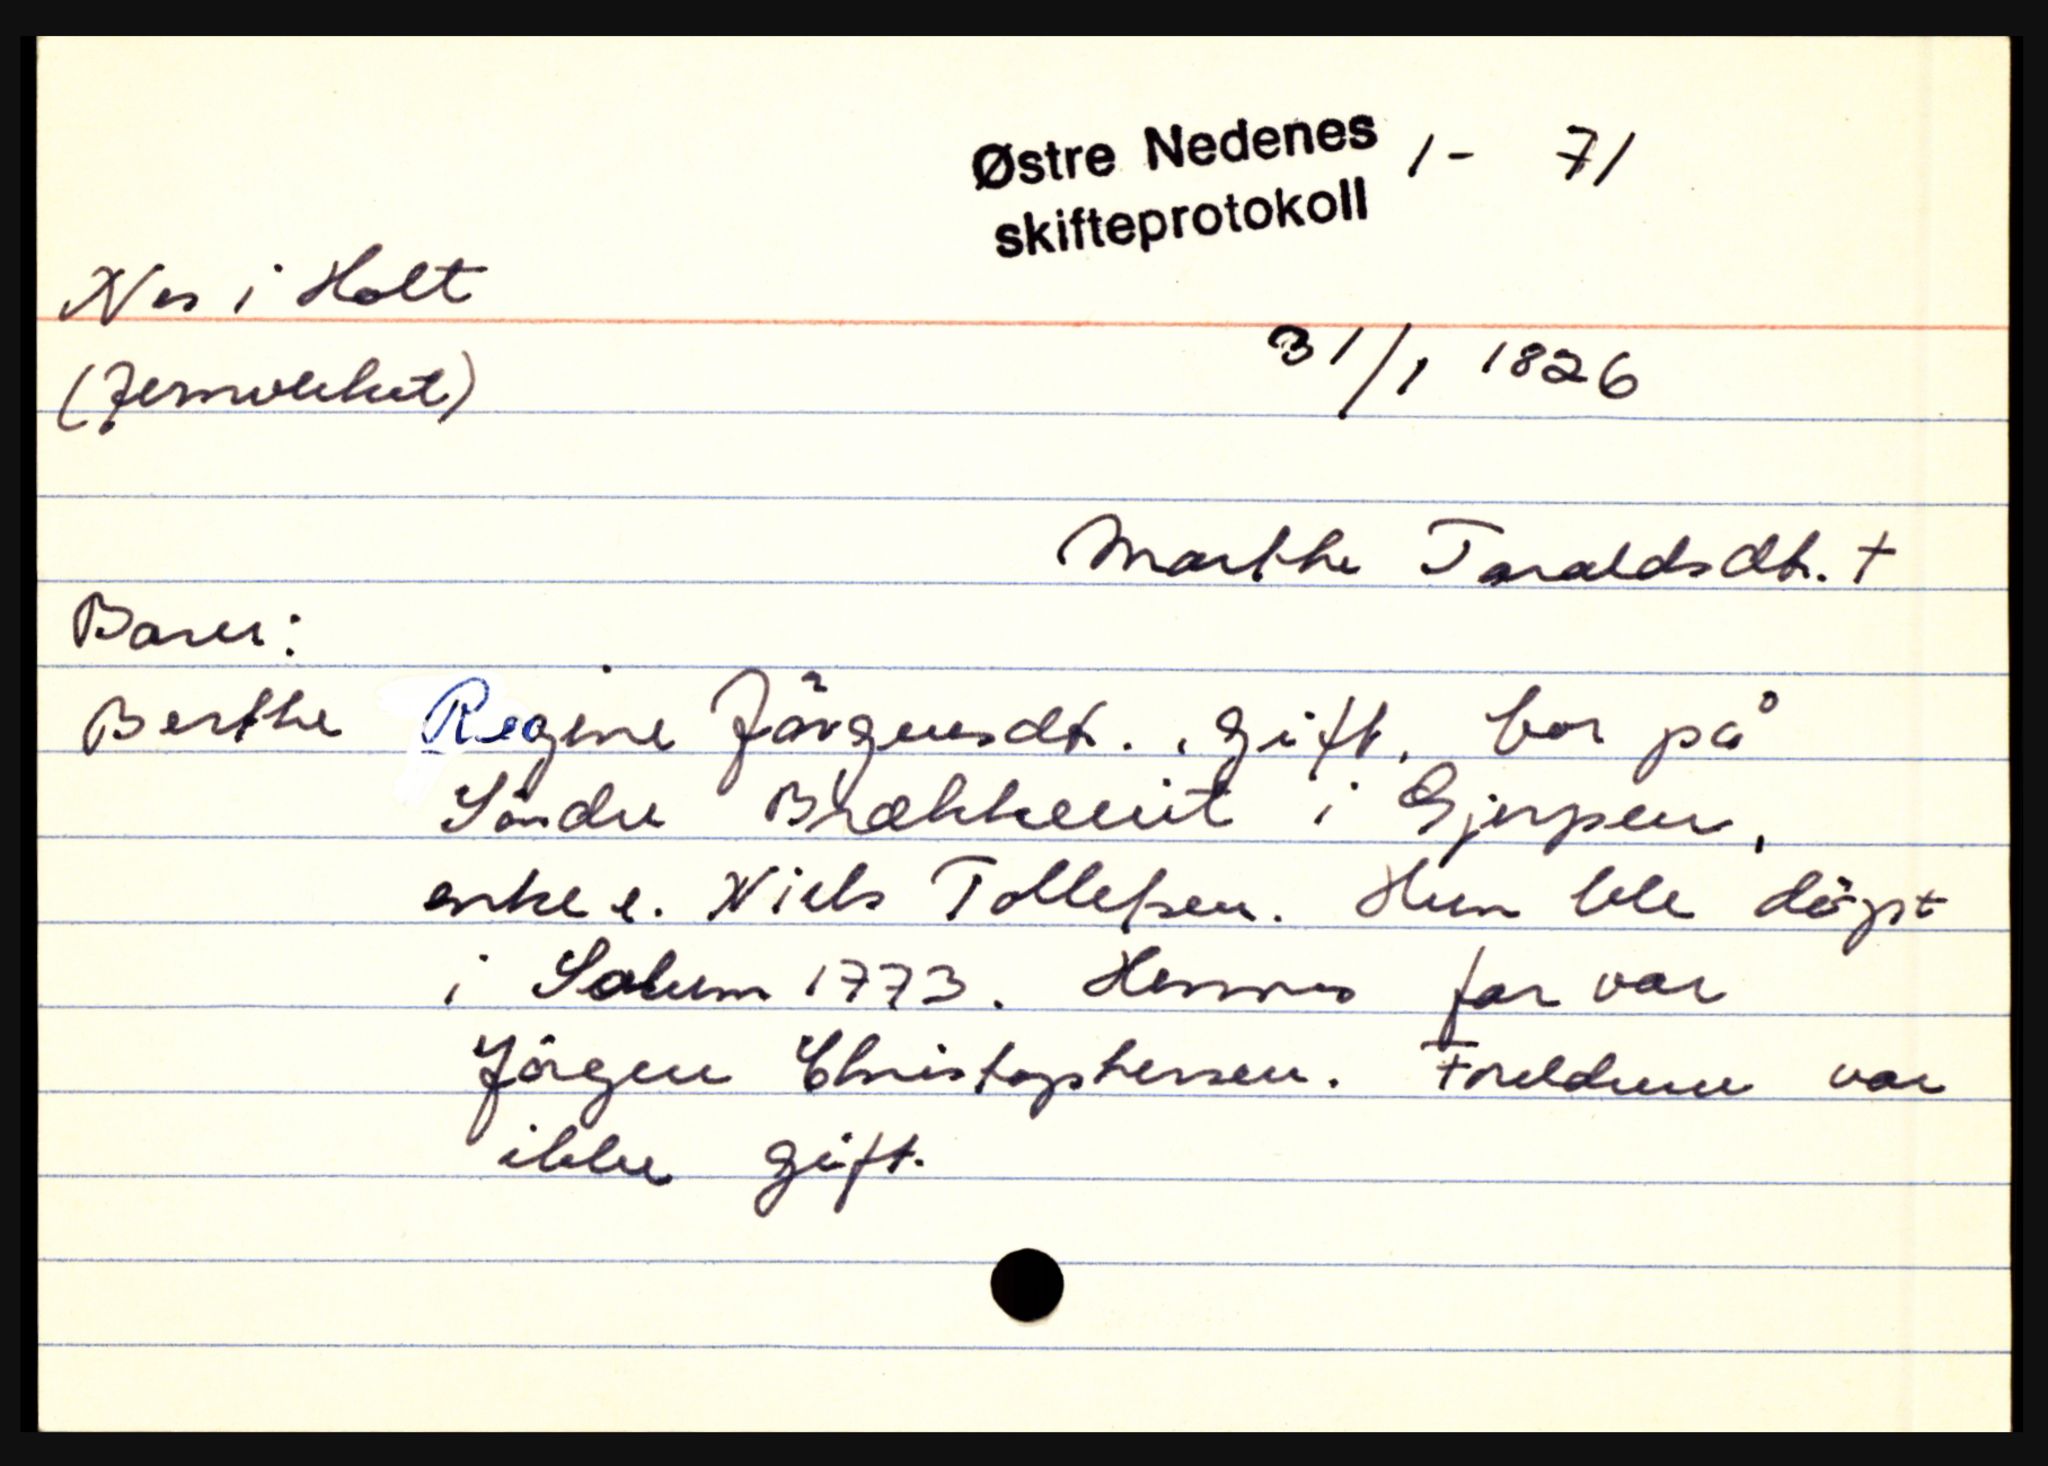 Østre Nedenes 1- 71
skifteprotokoll
Nes i Holt
(Jernverket)
31/1 1826
Marthe Taraldsdtr. +
Barn:
Berthe Regine Jörgensdtr., gift, bor på
Söndre Brækkeeiet i Gjerpen,
enke e. Niels Tollefsen. Hun ble döpt
i Solum 1773. Hennes far var
Jörgen Christophersen. Foreldrene var
ikke gift.